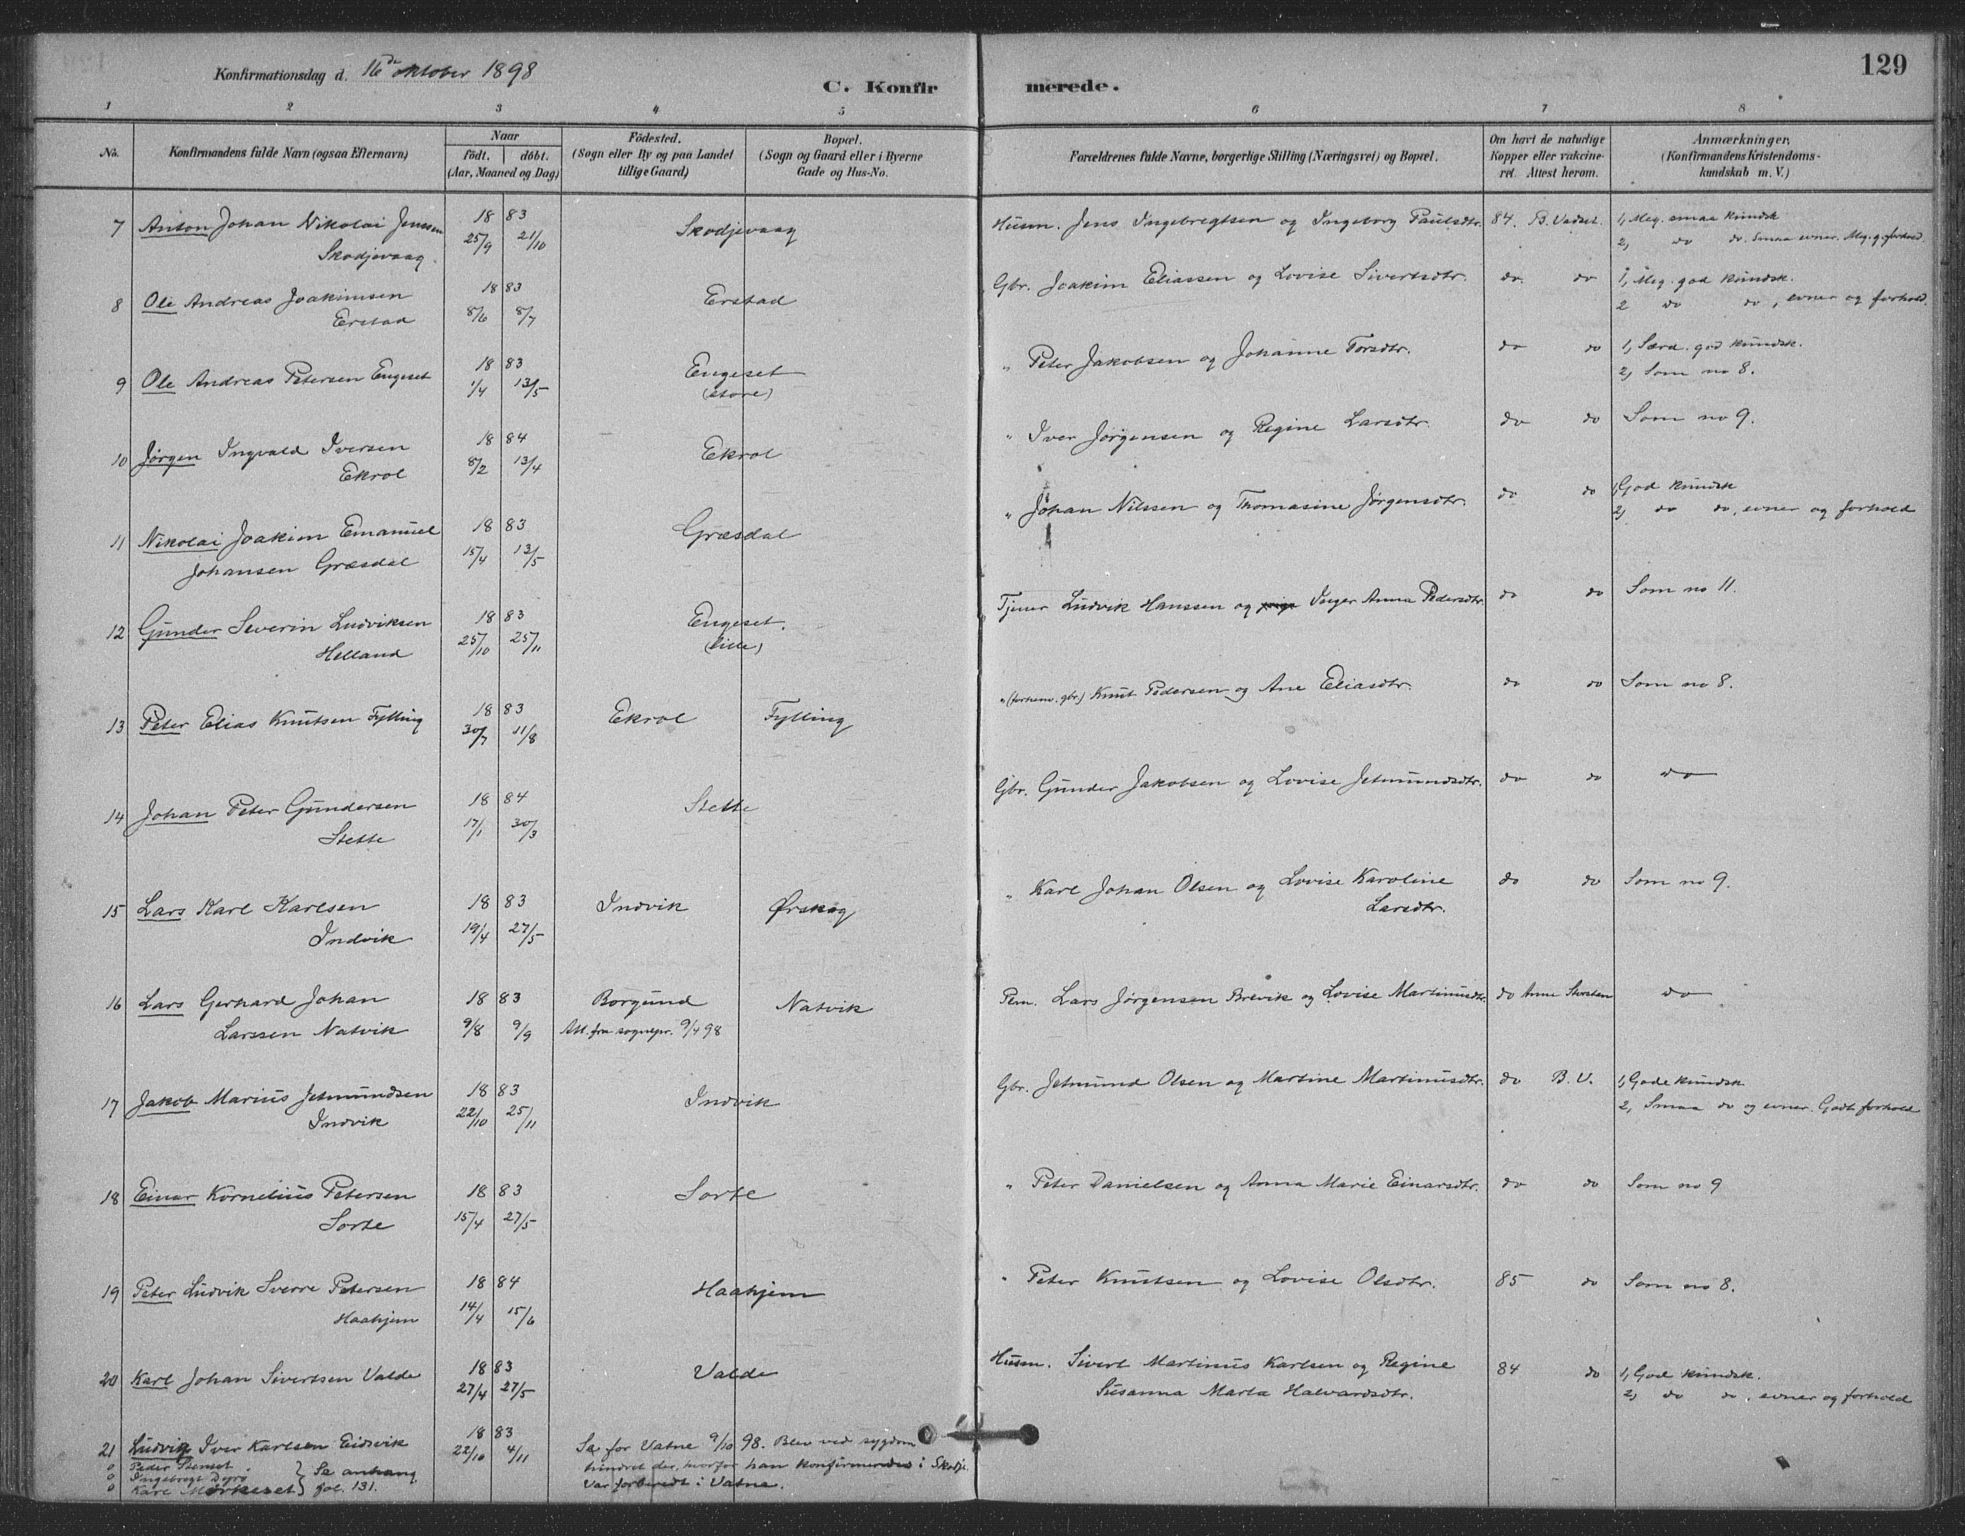 Konfirmationsdag d. 16de oktober 1898
C. Konfirmerede.
129
1 2 3 4 5 6 7 8
No. Konfirmandens fulde Navn (ogsaa Efternavn) Naar født. døbt. (Aar, Maaned og Dag) Fødested. (Sogn eller By og paa Landet tillige Gaard) Bopæl. (Sogn og Gaard eller i Byerne Gade og Hus-No. Forældrenes fulde Navne, borgerlige Stilling (Næringsvei) og Bopæl. Om havt de naturlige Kopper eller vakcineret. Attest herom. Anmærkninger. (Konfirmandens Kristendomskundskab m. V.)
7 Anton Johan Nikolai Jenssen 18 83 Skodjevaag Husm. Jens Ingebregtsen og Ingeborg Paulsdtr. 84. B. Vadset. 1, Meg. smaa kundsk
Skodjevaag. 25/9 21/10 2, do do. Smaa evner. Meg. g. forhold.
8 Ole Andreas Joakimsen 18 83 Erstad Gbr. Joakim Eliassen og Lovise Sivertsdtr. do do 1, Meg. god kundsk.
Erstad 8/6 8/7 2 do do, evner og forhold.
9 Ole Andreas Petersen Engeset 18 83 Engeset " Peter Jakobsen og Johanne Torsdtr. do do 1, Særd. god kundsk.
1/4 13/5 (store) 2, Som no 8.
10 Jørgen Ingvald Iversen 18 84 Ekrol " Iver Jørgensen og Regine Larsdtr. do do Som no 9.
Ekrol 8/2 13/4
11 Nikolai Joakim Emanuel 18 83 Græsdal " Johan Nilssen og Thomasine Jørgensdtr. do do 1, God kundsk
Johansen Græsdal 15/4 13/5 2, do do, evner og forhold
12 Gunder Severin Ludviksen 18 83 Engeset. Tjener Ludvik Hanssen og Inger Anna Pedersdtr. do do Som no 11.
Helland 25/10 25/11 (lille)
13 Peter Elias Knutsen Fylling 18 83 Ekrol Fylling " (forhenv. gbr.) Knut Pedersen og Ane Eliasdtr. do do Som no 8.
30/7 11/8
14 Johan Peter Gundersen 18 84 Stette Gbr. Gunder Jakobsen og Lovise Jetmundsdtr. do do do
Stette 17/1 30/3
15 Lars Karl Karlsen 18 83 Indvik Ørskog " Karl Johan Olsen og Lovise Karoline Larsdtr. do do Som no 9.
Indvik 19/4 27/5
16 Lars Gerhard Johan 18 83 Borgund Natvik Pem. Lars Jørgensen Brevik og Lovise Martinusdtr. do Anne Storsten do
Larssen Natvik 9/8 9/9 Att. fra sognepr. 9/4 98
17 Jakob Marius Jetmundsen 18 83 Indvik Gbr. Jetmund Olsen og Martine Martinusdtr. do B. V. 1, Gode kundsk
Indvik 22/10 25/11 2, Smaa do og evner. Godt forhold
18 Einar Kornelius Petersen 18 83 Sorte " Peter Danielsen og Anna Marie Einarsdtr. do do Som no 9
Sorte 15/4 27/5
19 Peter Ludvik Sverre Petersen 18 84 Haahjem " Peter Knutsen og Lovise Olsdtr. 85 do Som no 8.
Haahjem 14/4 15/6
20 Karl Johan Sivertsen Valde 18 83 Valde Husm. Sivert Martinus Karlsen og Regine 84 do 1, God kundsk.
27/4 27/5 Susanna Marta Halvardsdtr. 2, do do, evner og forhold
21 Ludvig Iver Karlsen Eidsvik 18 83 Se for Vatne 9/10 98. Blev ved sygdom
22/10 4/11 hindret der, hvorfor han konfirmeredes i Skodje.
Var forberedt i Vatne.
0 Peder Stenset
0 Ingebregt Dyrø } Se anhang
0 Kare Mørkeset } fol. 131.